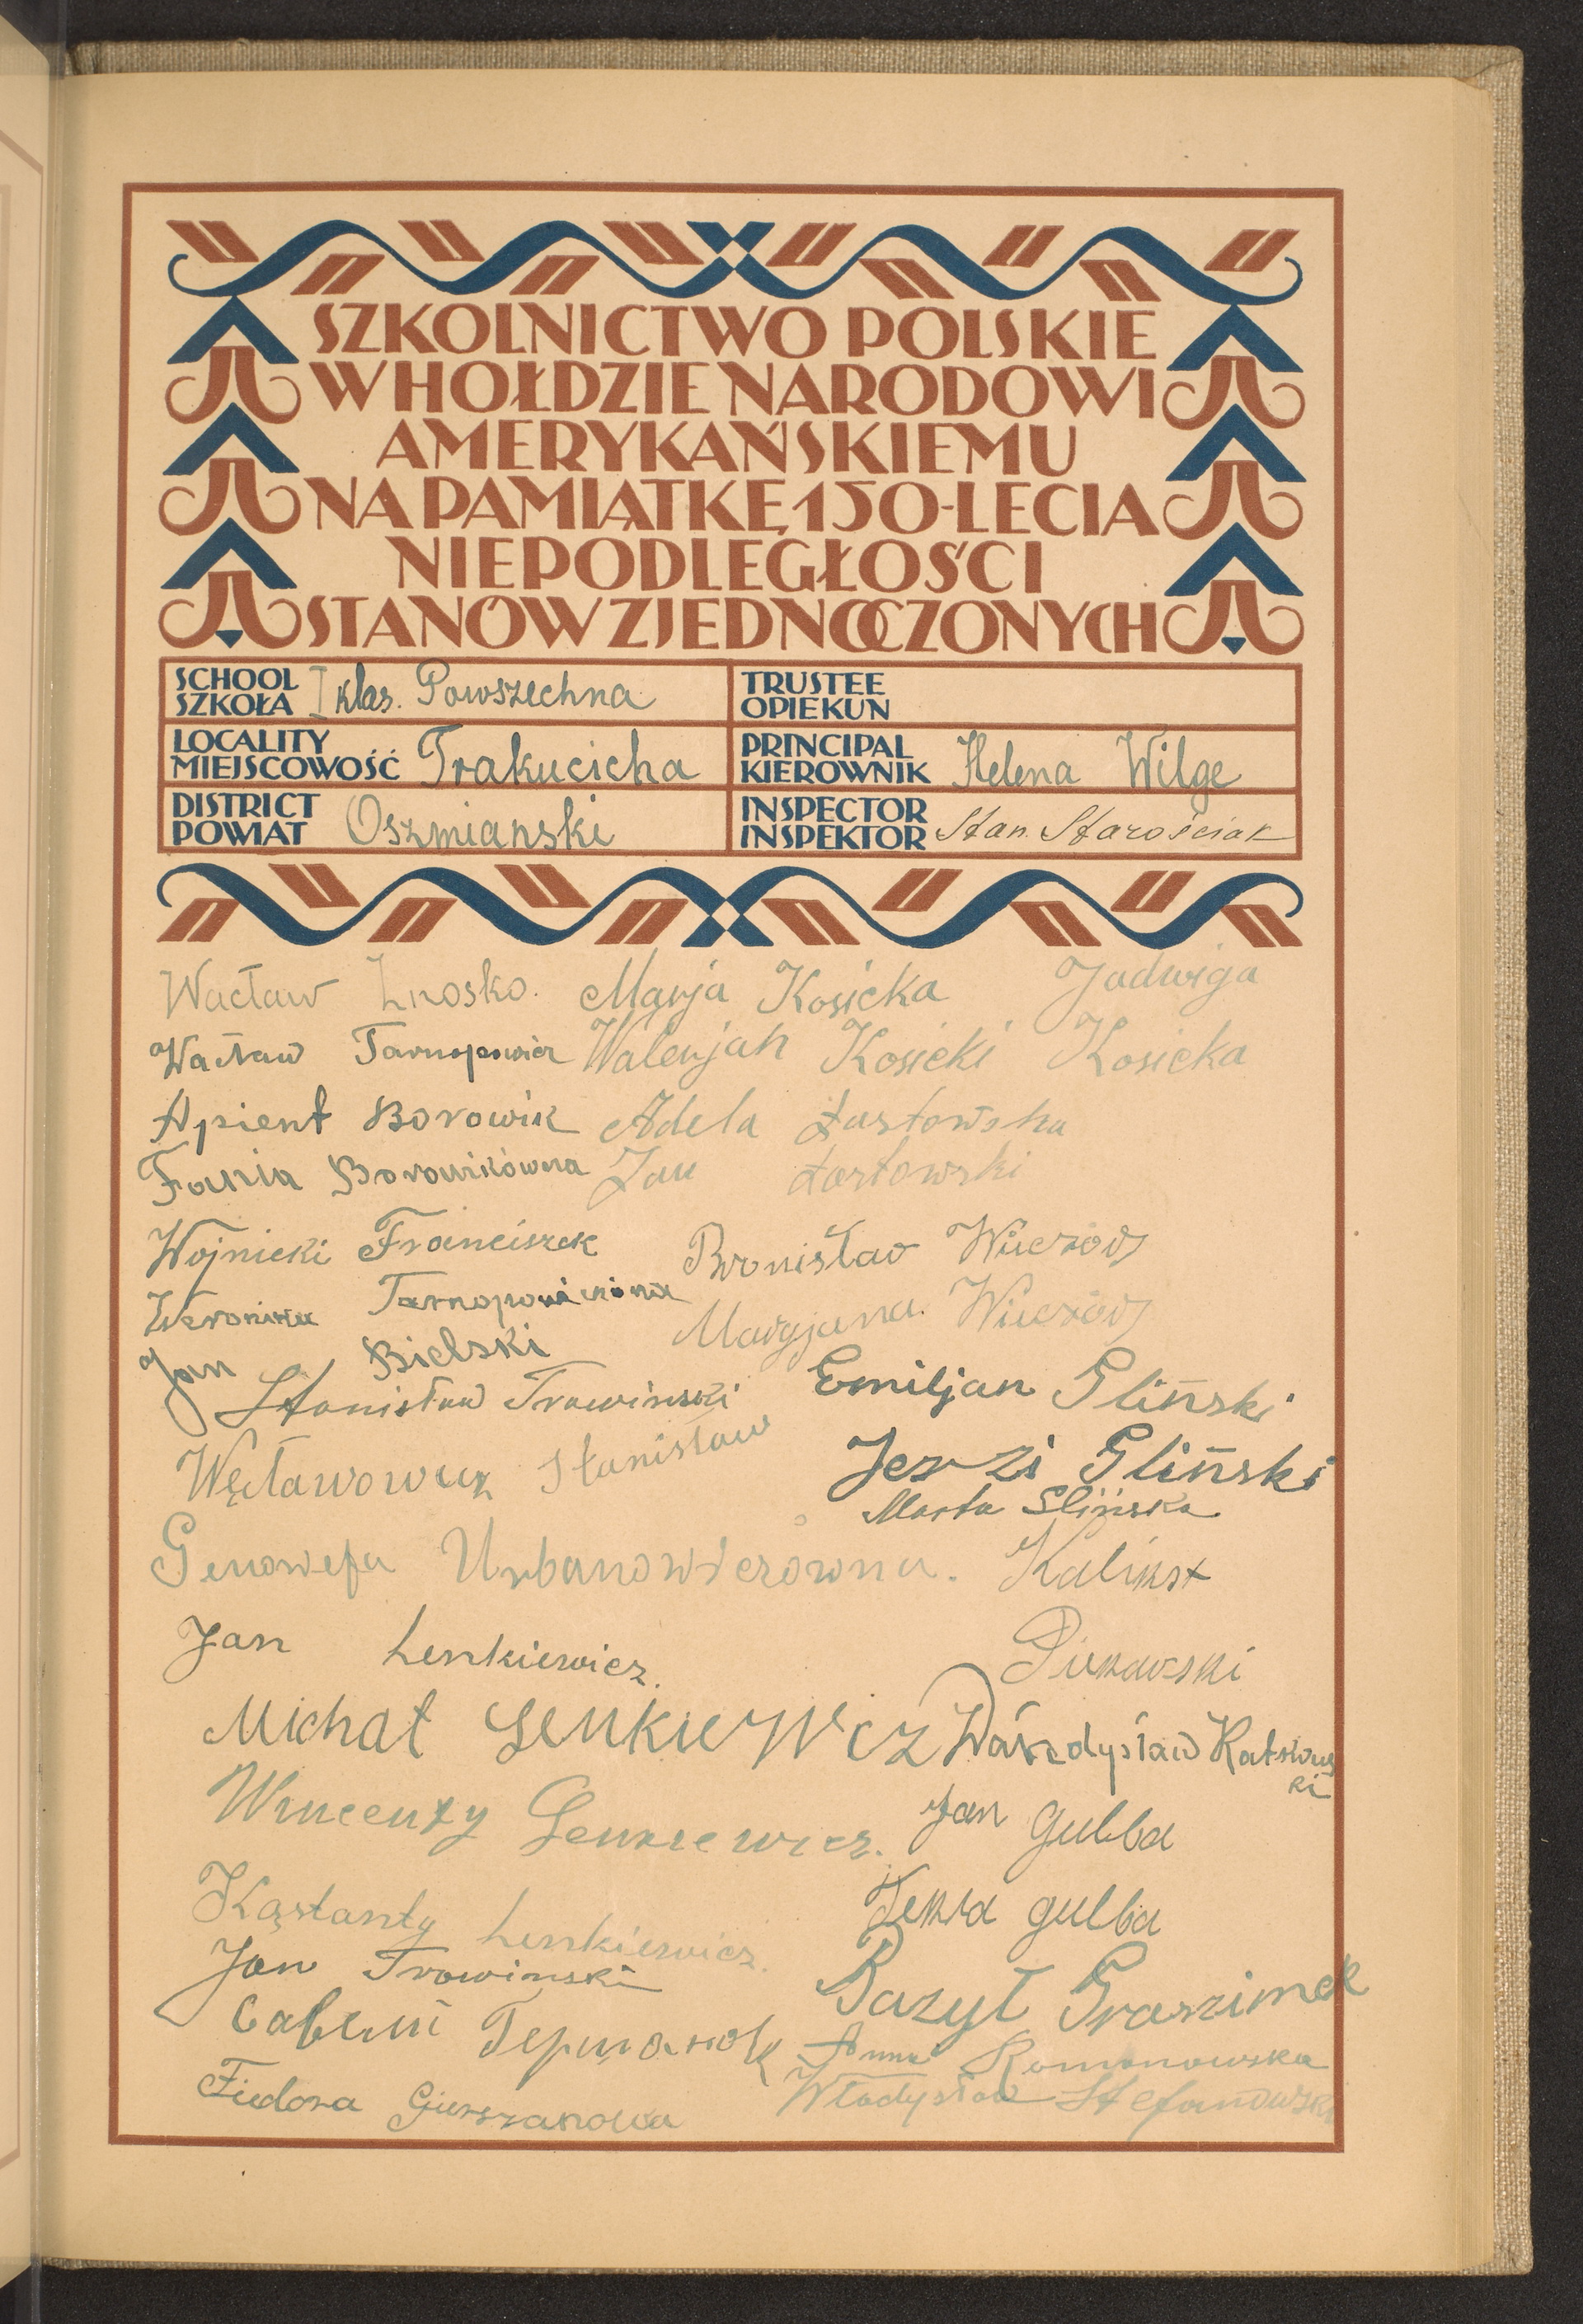 SZKOLNICTWO POLSKIE
W HOŁDZIE NARODOWI
AMERYKAŃSKIEMU
NA PAMIĄTKĘ 150-LECIA
NIEPODLEGŁOŚCI
STANÓW ZJEDNOCZONYCH
SCHOOL
SZKOŁA I klas. Powszechna
TRUSTEE
OPIEKUN
LOCALITY
MIEJSCOWOŚĆ Trakucicha
PRINCIPAL
KIEROWNIK Helena Wilge
DISTRICT
POWIAT Oszmianski
INSPECTOR
INSPEKTOR Stan. Starościak
Wacław
Wacław Tarnopowicz
Apient Borowik
Fania Borowikówna
Wojnicki Franciszek
Weronika
Jan Bielski
Stanisław Trowinski
Stanisław
Genowefa Urbanowiczówna.
Jan Lenkiewicz.
Michał Lenkiewicz
Wincenty Lenkiewicz.
Kąstanty Lenkiewicz.
Jan Trowinski
Fiedora
Marja Kosicka
Walerjan Kosicki
Adela Łastowska
Jan Łastowski
Jadwiga
Kosicka
Bronisław
Marjjana.
Emiljan Gliński
Jerzi Gliński
Marta Glińska
Kalikst
Jan Gulba
Tekla gulba
Bazyl
Anna Romanowska
Władysław Stefanowski